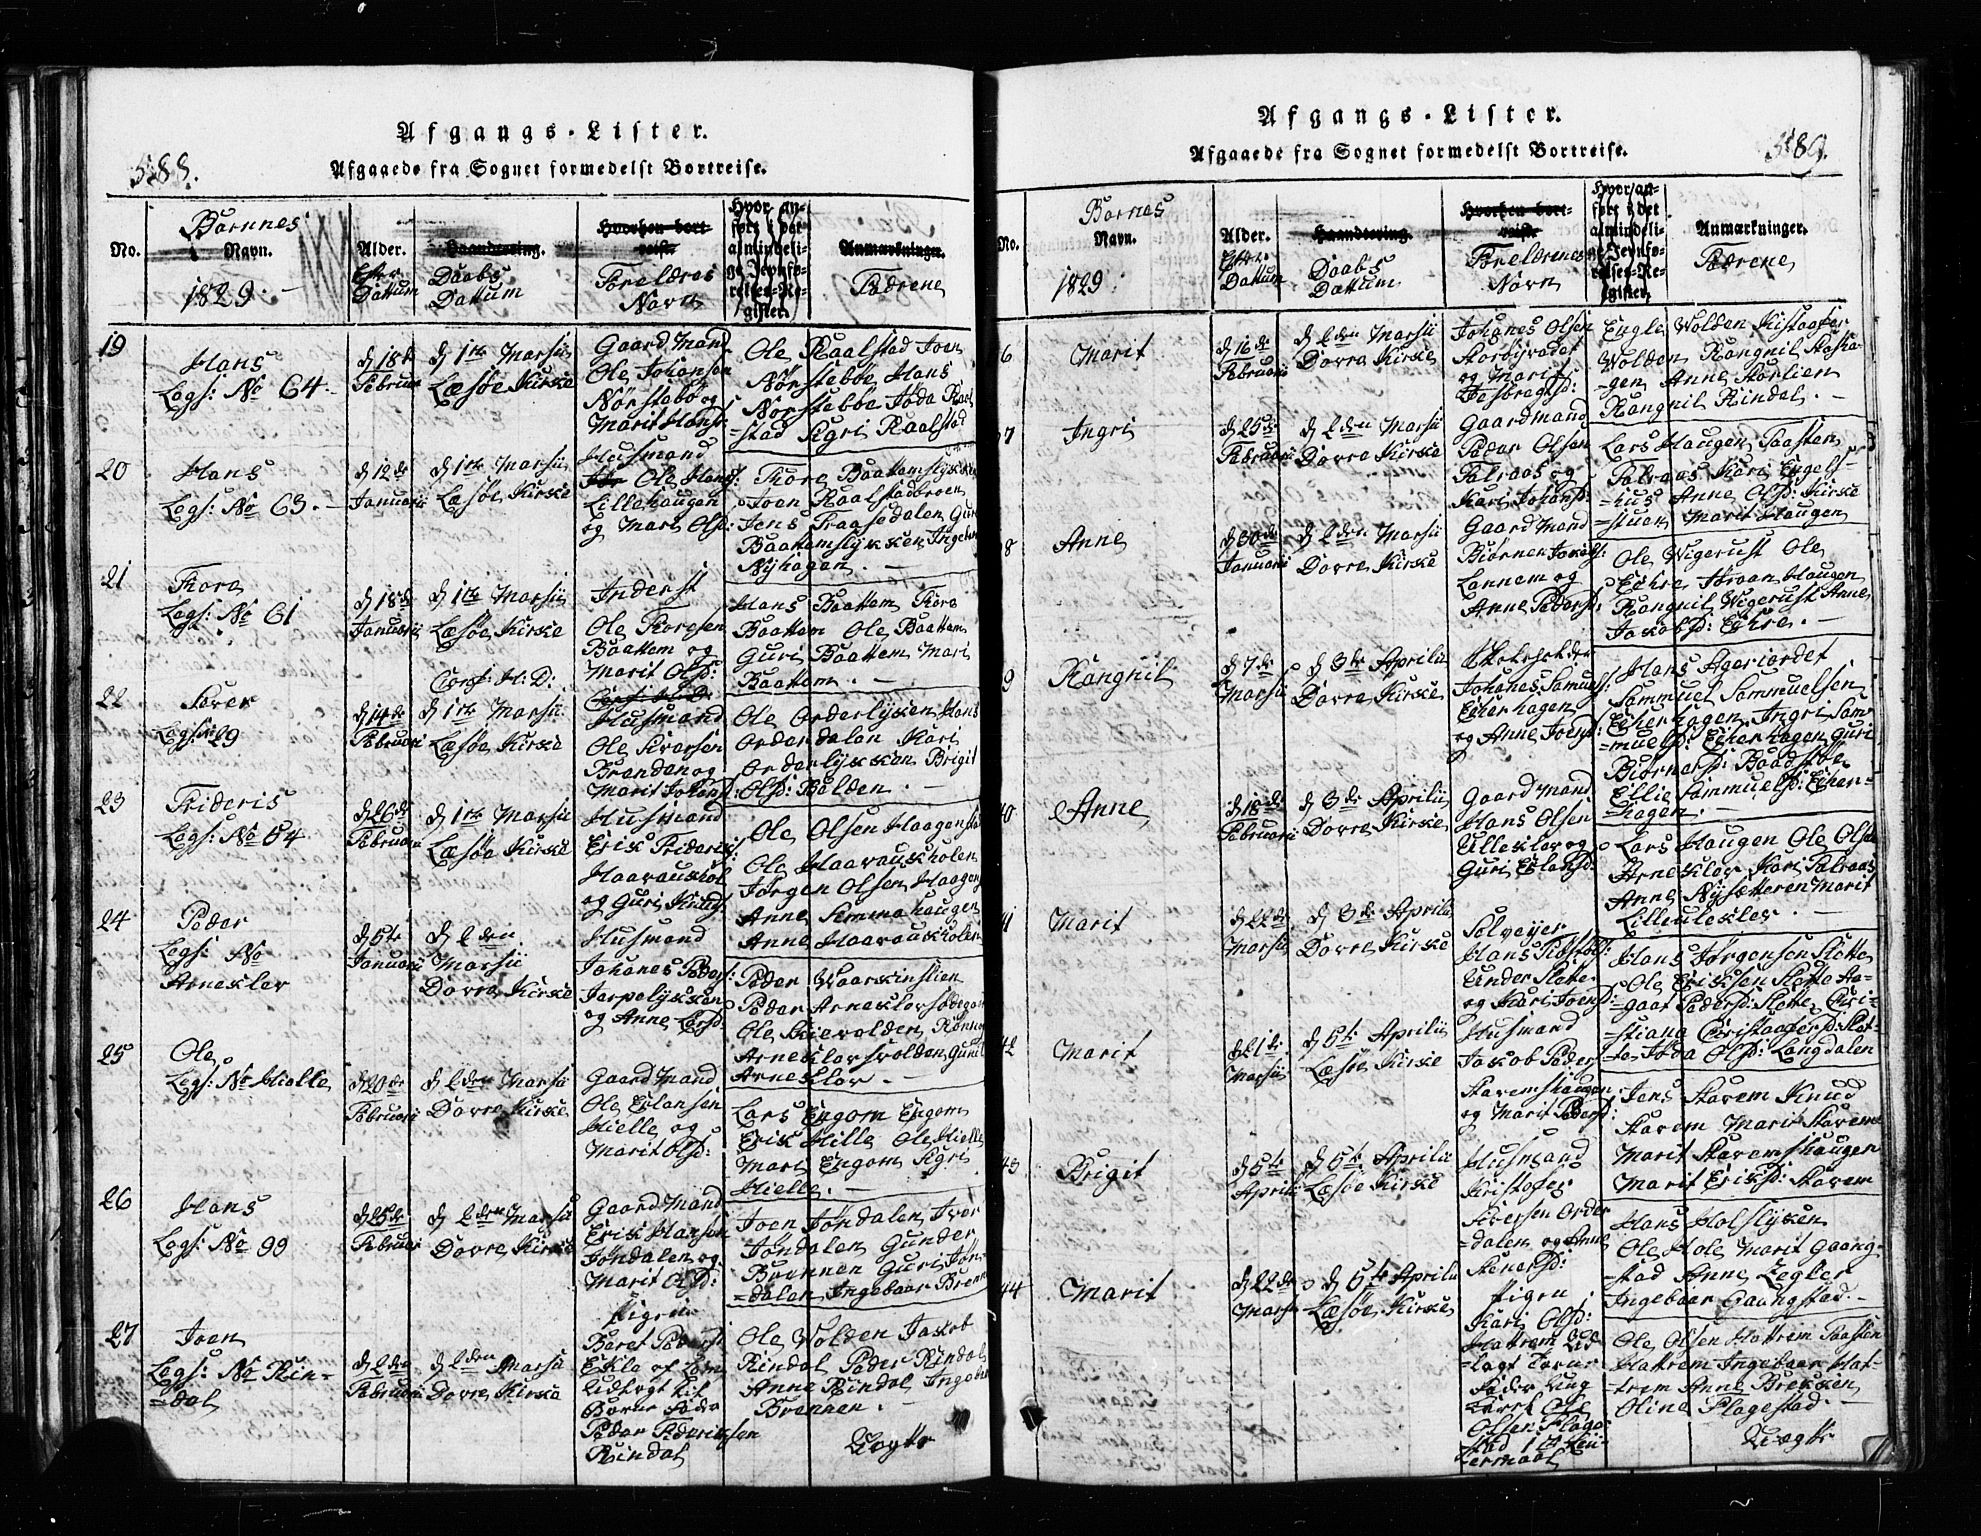 Afgangs-Lister.
588.
Afgaaede fra Sognet formedelst Bortreise.
No.
Børnnes
Navn.
1829.
Alder.
Efter
Dattum
Haandtering.
Daabs
Dattum
Hvorhen bort-
reist
Forelæres
Navn
Hvor an-
ført i det
almindeli-
ge Jevnfø-
relses-Re-
gister.
Anmærkninger.
Fadrene
19
Hans
Legs: No 64.
d 18de
Februari
d 1ste Marsii
Læsøe Kirke
Gaard Mand
Ole Johansen
Nørstebø og
Marit Hansd:
Ole Raalstad Joen
Nørstebøe Hans
Nørstebøe Jøda Raal
=stad Sigri Raalstad
20
Hans
Legs: No 63.
d 12de
Januarii
d 1ste Marsii
Læsøe Kirke
Husmand
Ole Hans:
Lillehaugen
og Mari Olsd:
Thore Baattemslykken
Joen Raalstadbroen
Jens Guri
Baattemslykken Ingebor
Nyhagen.
21
Thore
Legs: No 61
d 18de
Januarii
d 1ste Marsii
Læsøe Kirke
Conf: H: D:
Inderst
Ole Thoresen
Baattem og
Marit Olsd:
Hans Baattem Thore
Baattem Ole Baattem
Guri Baattem Mari
Baattem.
22
Siver
Legs: 29
d 14de
Februari
d 1ste Marsii
Læsøe Kirke
Husmand
Ole Siversen
Brenden og
Marit Johansd:
Ole Orderlykken Hans
Orderdalen Kari
Orderlykken Brigit
Olsd: Balden.
23
Frideris
Legs: No 54
d 26de
Februari
d 1ste Marsii
Læsøe Kirke
Husmand
Erik Frideriks:
Haavaukhol
og Guri Knuds
Ole Olsen Haagenstad
Ole Haavaukholen
Jørgen Olsen Haagens
Anne haugen
Anne Haavaukholen
24
Peder
Legs: No
Arneklev
d 5te
Januarii
d 2den
Marsii
Dovre Kirke
Husmand
Johanes Peders:
Jerpelykken
og Anne Larsd:
Peder
Peder
Ole
Gunil
Arneklev
25
Ole
Legs: No Hielle
d 20de
Februarii
d 2den Marsii
Dovre Kirke
Gaard Mand
Ole Erlansen
Hielle og
Marit Olsd:
Lars Engom Engom
Erik Hille Ole Hielle
Mari Engom Sigri
Hielle.
26
Hans
Legs: No 99
d 25de
Februari
d 2den Marsii
Dovre Kirke
Gaard Mand
Erik Hansen
Jøndalen og
Marit Olsd:
Joen Jøndalen Iver
Jøndalen Gunder
Brennen Guri Jøn-
=dalen Ingebaar Brenn
27
Joen
Legs: No Rin-
=dal
d 2den
Februari
d 2den Marsii
Dovre Kirke
Pigen
Baret Pedersd
Udlagt til
Barne Fader
Peder Frideriksen
Rindal
Ole Wolden Jakob
Rindal Peder Rindal
Anne Rindal Ingebor
Brennen.
Afgangs-Lister.
589.
Afgaaede fra Sognet formedelst Bortreise.
No.
Børnes
Navn.
1829.
Alder.
Efter
Dattum
Haandtering.
Daabs
Dattum
Hvorhen bort-
reist
Forelærenes
Navn
Hvor an-
ført i det
almindeli-
ge Jevnfø-
relses-Re-
gister.
Anmærkninger.
Fadrene
6
Marit
d 16de
Februarii
d 2den Marsii
Dovre Kirke
Johanes Olsen
Storbyrødet
og Marit
Engle Wolden Kistoofer
Wolden Rangnil
=gen Anne Storlien
Rangnil Rindal.
7
Ingri
d 25de
Februarii
d 2den Marsii
Dovre Kirke
Gaardmand
Peder Olsen
Talraas og
Kari Johansd:
Lars Haugen Taasten
Talraas Kari Engels-
=hus Anne Olsd: Kirke
=stuen Marit Haugen
8
Anne
d 30de
Januarii
d 2den Marsii
Dovre Kirke
Gaard Mand
Biørner Jakobs:
Lannem og
Anne Pedersd:
Ole Wigerust Ole
Eehre Haugen
Rangnil Wigerust Anne
Jakobsd: Eehre.
9
Rangnil
d 7de
Marsii
d 3de Aprilii
Dovre Kirke
Johanes Samuels:
Eikerhagen
og Anne Joensd:
Hans Ageriordet
Sammuel Sammuelsen
Eikerhagen Ingri Sam-
=muelsd: Eikerhagen Guri
Biørnersd: Baadstøe
Ellie Sammuelsd: Eiker-
=hagen.
40
Anne
d 18de
Februarii
d 3de Aprilii
Dovre Kirke
Gaard Mand
Hans Olsen
Ulleklev og
Guri Erlansd:
Lars Haugen Ole Olsen
Arneklev Kari Talraas
Anne Nysætteren Marit
Lilleuleklev.
41
Marit
d 22de
Marsii
d 3de Aprilii
Dovre Kirke
Selveyer
Hans
Under Slette
og Kari Joensd:
Hans Jørgensen Slette
Ole Eriksen Slette Aa-
=gaat Pedersd: Slette Ciri-
=stiana Cristaafersd: Slet-
=te Jøda Olsd: Langdalen
42
Marit
d 21de
Marsii
d 5te Aprilii
Læsøe Kirke
Husmand
Jakob Peders
Stavemshaugen
og Marit Pedersd:
Jens Stavem Knud
Stavem Marit Stavem
Marit Stavemshaugen
Marit Eriksd: Stavem
43
Brigit
d 5te
Aprilii
d 5te Aprilii
Læsøe Kirke
Husmand
Kristofer
Siversen Order
=dalen og Anne
Stenersd:
Hans Holslykken
Ole Hole Marit Gaang-
=stad Anne Legler
Ingebaar Gaangstad.
44
Marit
d 22de
Marsii
d 5te Aprilii
Læsøe Kirke
Pigen
Kari Olsd:
Hattrem Ud-
=lagt Barne
Fader Ung
Karl Ole
Olsen Flage
stad 1ste Leii-
ermaal
Ole Olsen Hattrem Taasten
Hattrem Ingebaar Hat-
=trem Anne Brekken
Oline Flagestad.